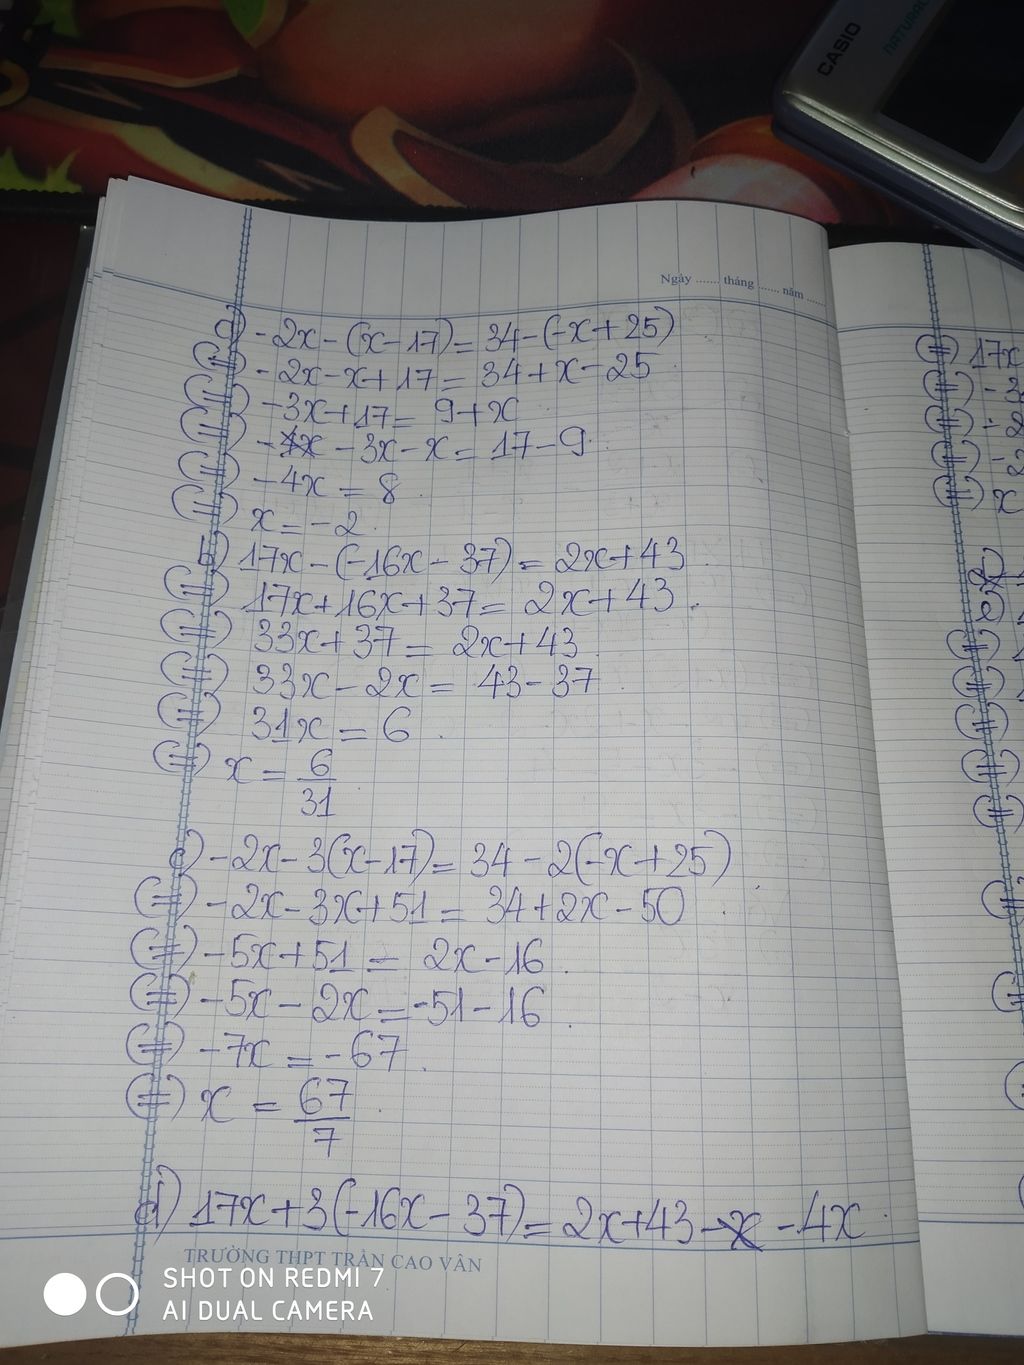 CASIO
NATURAL
Ngày ....... tháng ...... năm ......
a) -2x - (x - 17) = 34 - (-x + 25)
(=) -2x - x + 17 = 34 + x - 25
(=) -3x + 17 = 9 + x
(=) -3x - x = 17 - 9
(=) -4x = 8
(=) x = -2
b) 17x - (-16x - 37) = 2x + 43
(=) 17x + 16x + 37 = 2x + 43
(=) 33x + 37 = 2x + 43
(=) 33x - 2x = 43 - 37
(=) 31x = 6
(=) x = 6/31
c) -2x - 3(x - 17) = 34 - 2(-x + 25)
(=) -2x - 3x + 51 = 34 + 2x - 50
(=) -5x + 51 = 2x - 16
(=) -5x - 2x = -51 - 16
(=) -7x = -67
(=) x = 67/7
d) 17x + 3(-16x - 37) = 2x + 43 - 4x
TRƯỜNG THPT TRẦN CAO VÂN
(=) 17x
SHOT ON REDMI 7
AI DUAL CAMERA